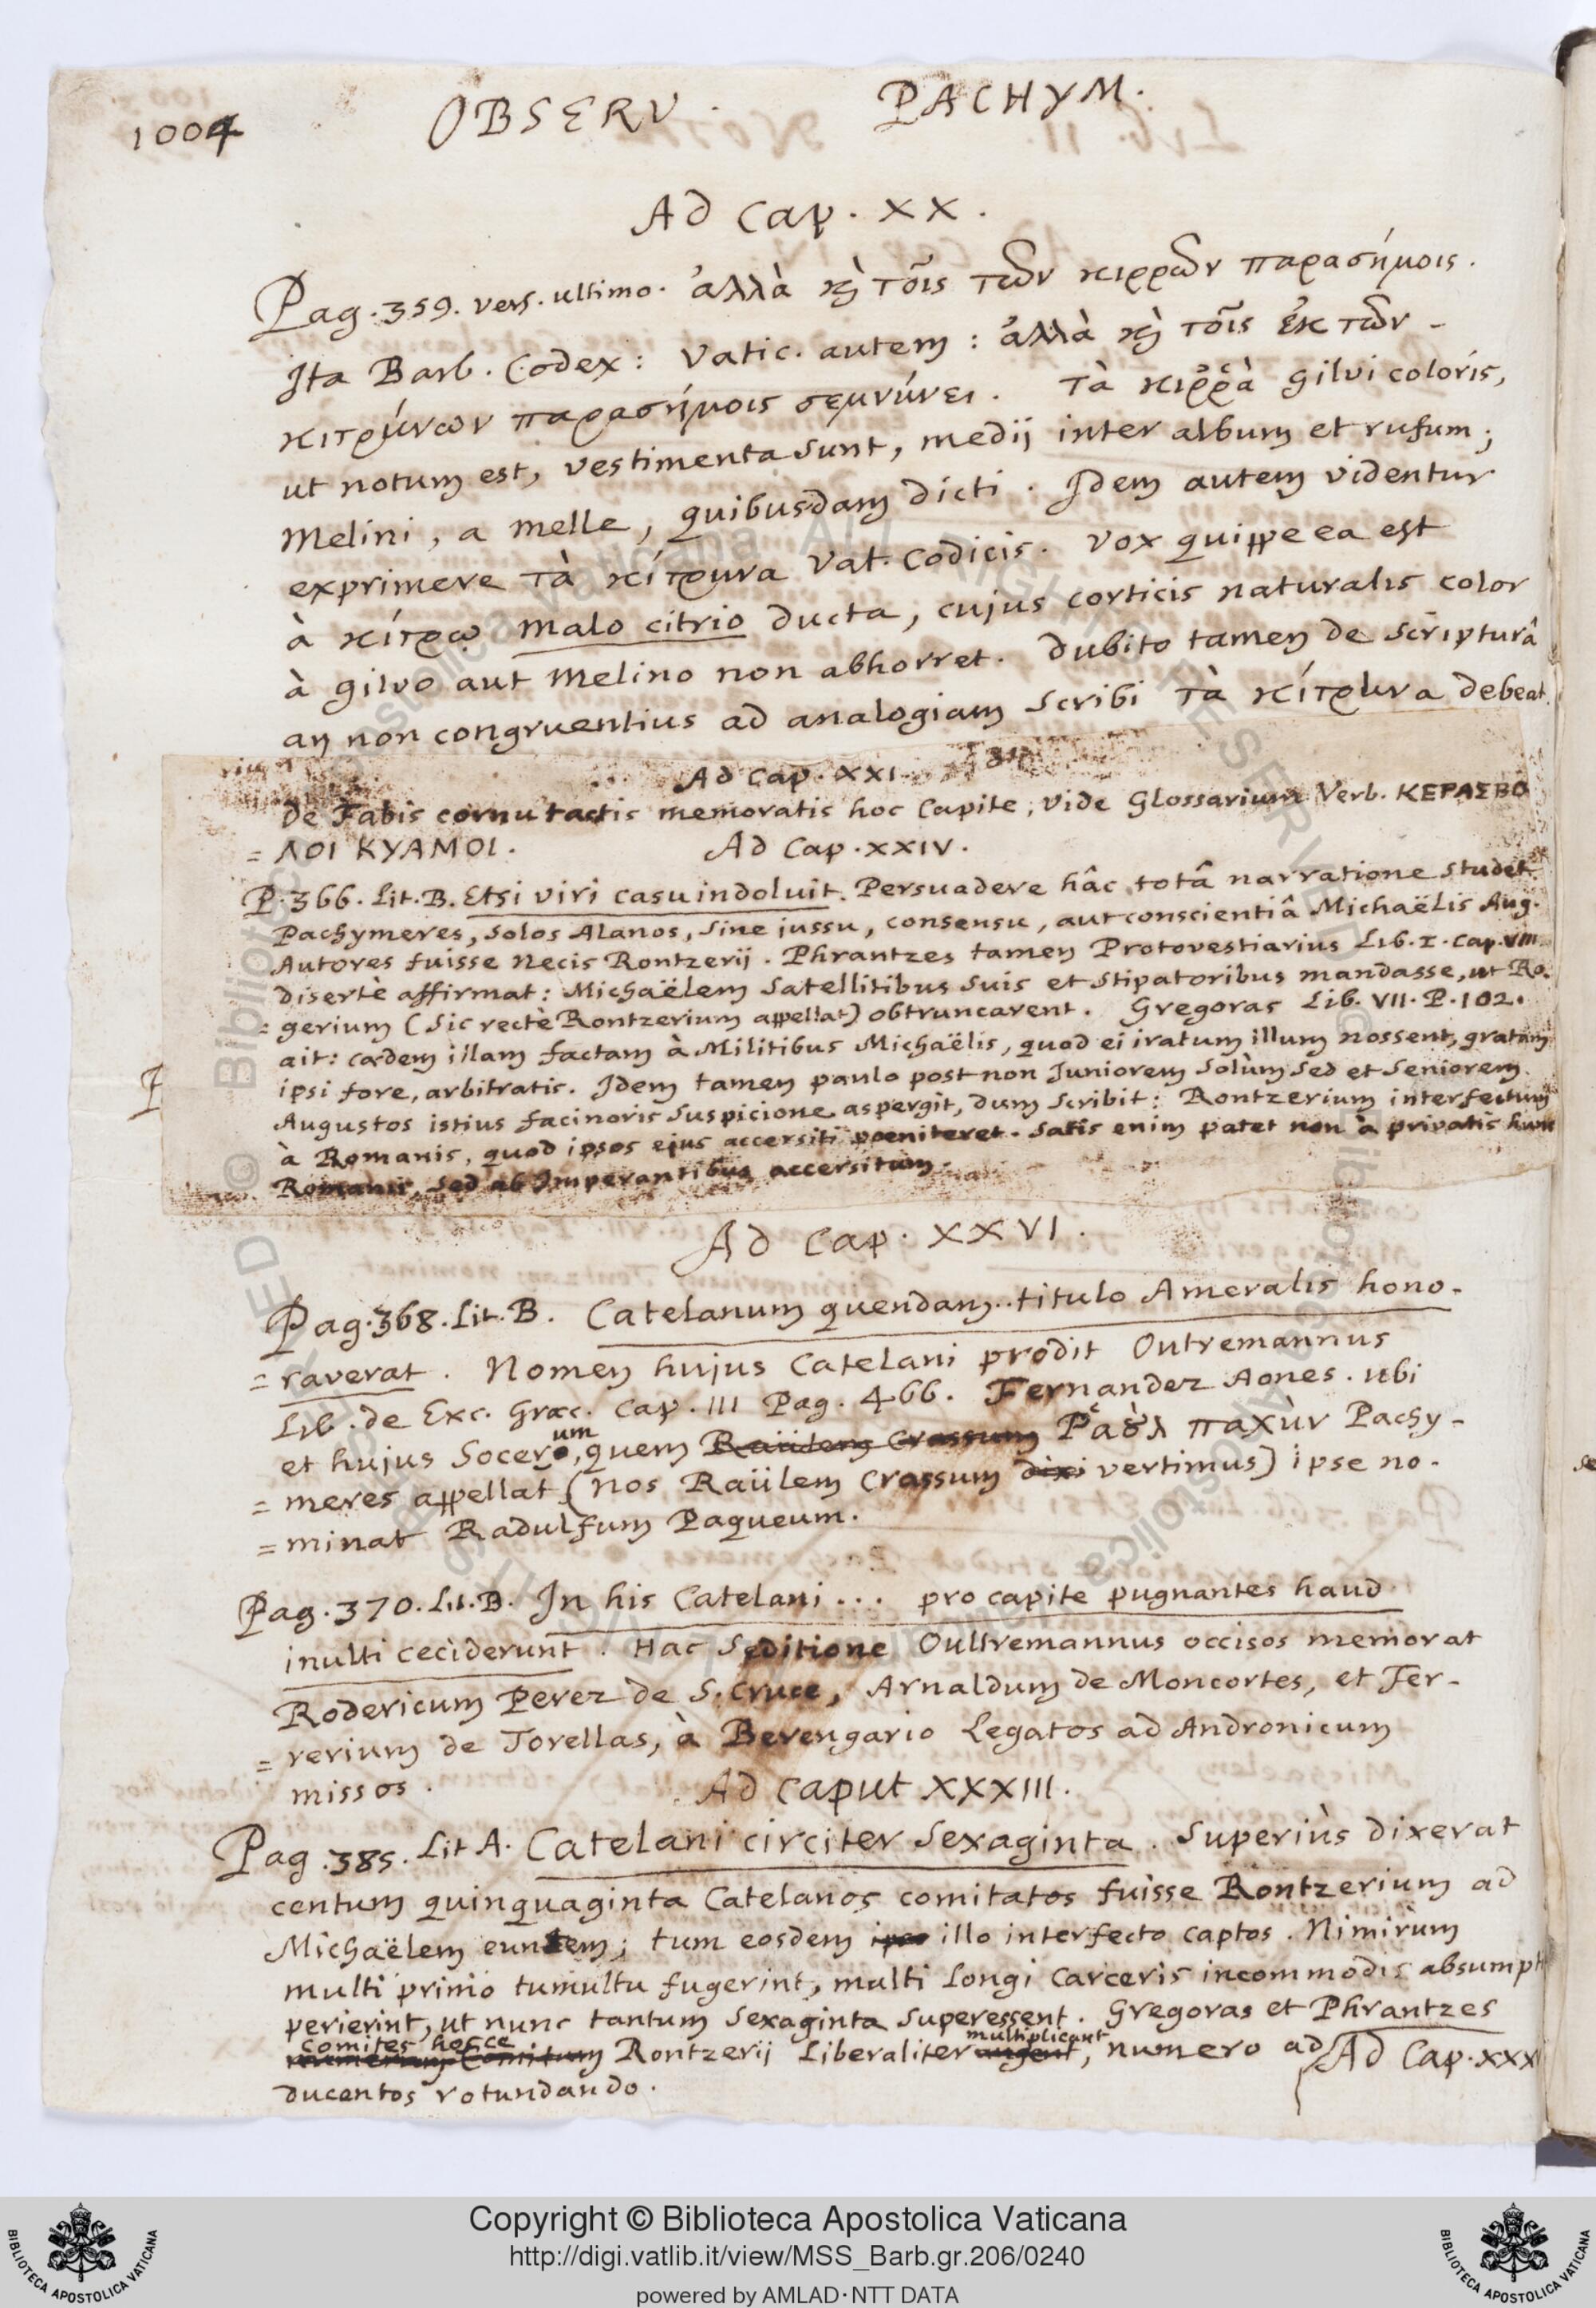 1004 OBSERV. PACHYM.
Ad Cap. XX.
Pag. 359. vers. ultimo. ἀλλὰ καὶ τοῖς τῶν κιρρῶν παρασήμοις.
Ita Barb. Codex: Vatic. autem: ἀλλὰ καὶ τοῖς ἐκ τῶν -
κιτρύνων παρασήμοις σεμνύνει. Τὰ κιῤῥὰ gilvi coloris,
ut notum est, vestimenta sunt, medij inter album et rufum;
Melini, a melle, quibusdam dicti. Idem autem videntur
exprimere τὰ κίτρυνα Vat. Codicis. Vox quippe ea est
à κίτρῳ malo citrio ducta, cujus corticis naturalis color
à gilvo aut Melino non abhorret. Dubito tamen de Scripturâ
an non congruentius ad analogiam scribi τὰ κίτρινα debeat.
Ad Cap. XXI.
De Fabis cornutactis memoratis hoc Capite, vide Glossarium Verb. ΚΕΡΑΣΒΟ
= ΛΟΙ ΚΥΑΜΟΙ. Ad Cap. XXIV.
P. 366. Lit. B. Etsi viri casu indoluit. Persuadere hâc totâ narratione studet
Pachymeres, solos Alanos, sine jussu, consensu, aut conscientiâ Michaëlis Aug.
Autores fuisse necis Rontzerij. Phrantzes tamen Protovestiarius Lib. I. Cap. VIII
disertè affirmat: Michaëlem Satellitibus suis et Stipatoribus mandasse, ut Ro.
= gerium (sic rectè Rontzerium appellat) obtruncarent. Gregoras Lib. VII. P. 102.
ait: cædem illam factam à Militibus Michaëlis, quod ei iratum illum nossent, gratam
ipsi fore, arbitratis. Idem tamen paulo post non Juniorem solùm sed et Seniorem
Augustos istius facinoris suspicione aspergit, dum scribit: Rontzerium interfectum
à Romanis, quod ipsos ejus accersiti poeniteret. Satis enim patet non à privatis hunc
Romanis, sed ab Imperantibus accersitum.
Ad Cap. XXVI.
Pag. 368. Lit. B. Catelanum quendam.. titulo Ameralis hono-
= raverat. Nomen hujus Catelani prodit Outremannus
Lib. de Exc. Græc. Cap. III Pag. 466. Fernandez Aones. ubi
et hujus Socerum, quem Raülem Crassum Ῥαοὺλ παχὺν Pachy-
= meres appellat (nos Raülem Crassum dixi vertimus) ipse no-
= minat Radulfum Paqueum.
Pag. 370. Lit. B. In his Catelani ... pro capite pugnantes haud
inulti ceciderunt. Hac seditione Oultremannus occisos memorat
Rodericum Perez de S. Cruce, Arnaldum de Moncortes, et Fer-
= rerium de Torellas, à Berengario Legatos ad Andronicum
missos. Ad Caput XXXIII.
Pag. 385. Lit A. Catelani circiter Sexaginta. Superiùs dixerat
centum quinquaginta Catelanos comitatos fuisse Rontzerium ad
Michaëlem euntem; tum eosdem ipso illo interfecto captos. Nimirùm
multi primo tumultu fugerint, multi longi carceris incommodis absumpti
perierint, ut nunc tantum Sexaginta superessent. Gregoras et Phrantzes
comites hosce Rontzerij Liberaliter multiplicant augent, numero ad Ad Cap. XXX
ducentos rotundando.
Copyright © Biblioteca Apostolica Vaticana
http://digi.vatlib.it/view/MSS_Barb.gr.206/0240
powered by AMLAD·NTT DATA
BIBLIOTECA APOSTOLICA VATICANA
BIBLIOTECA APOSTOLICA VATICANA